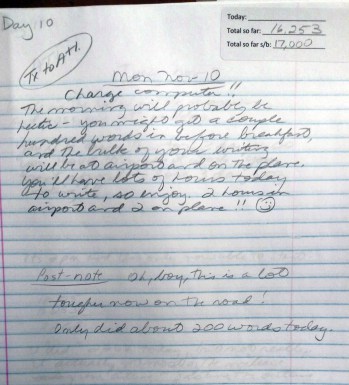 Day 10
Today:
Total so far: 16,253
Total so far s/b: 17,000
Tx to Atl.
Mon Nov-10
Charge computer!!
The morning will probably be
hectic - you might get a couple
hundred words in before breakfast,
and the bulk of your writing
will be at airport and on the plane.
You'll have lots of hours today
to write, so enjoy. 2 hours in
airport and 2 on plane!! ☺
Post-note Oh, boy, this is a lot
tougher now on the road!
Only did about 200 words today.